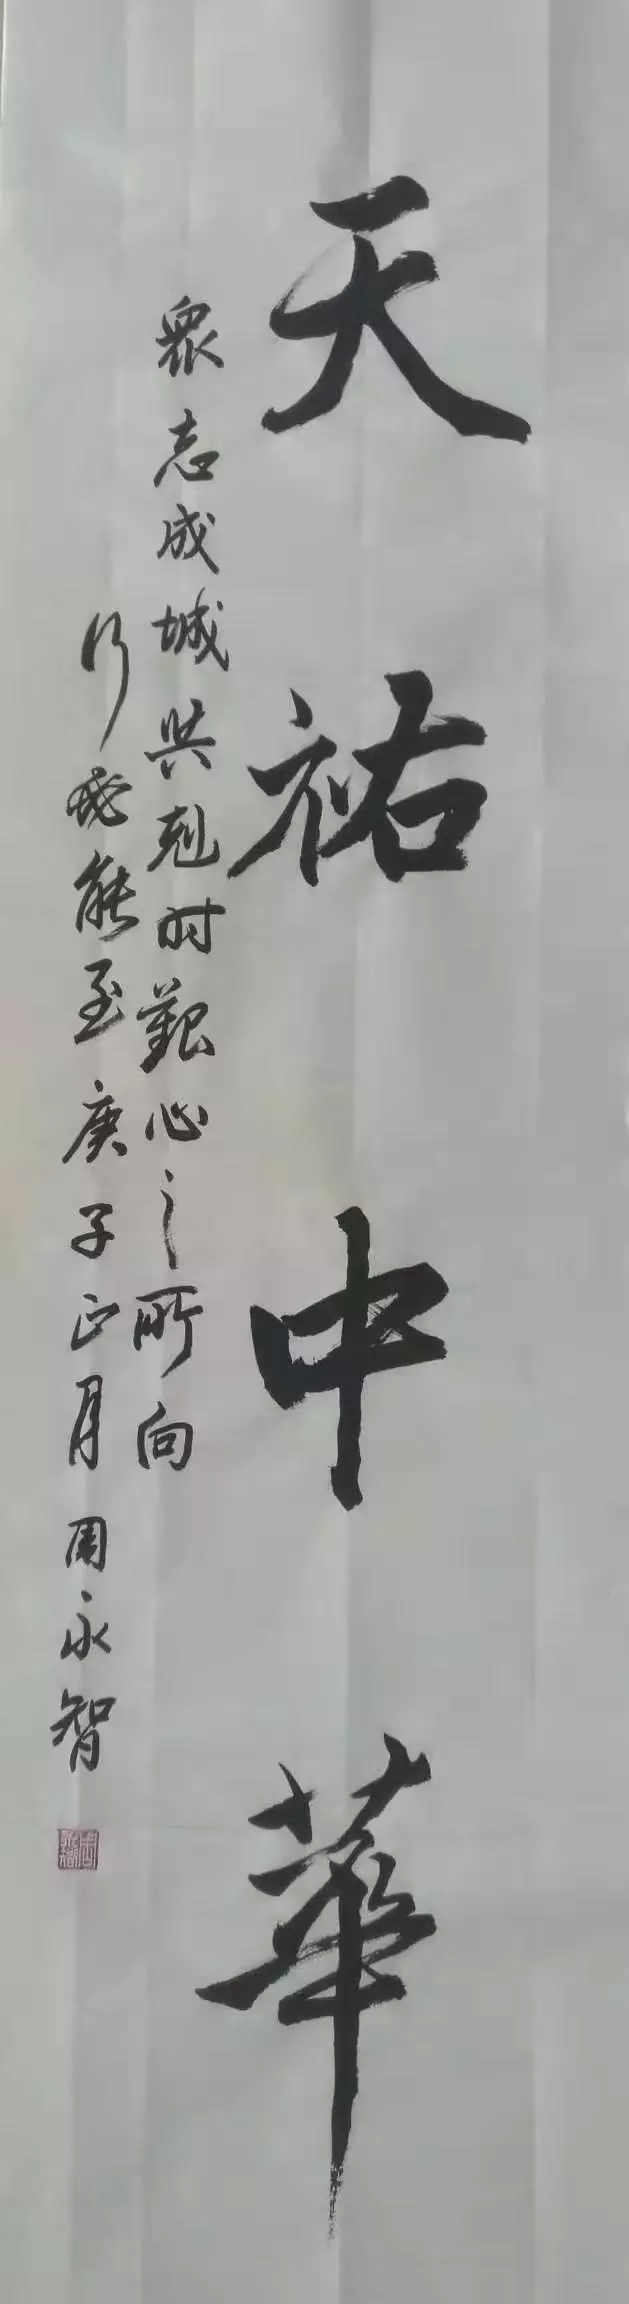 天祐中華
眾志成城共剋时艱心之所向
行必能至庚子正月周永智